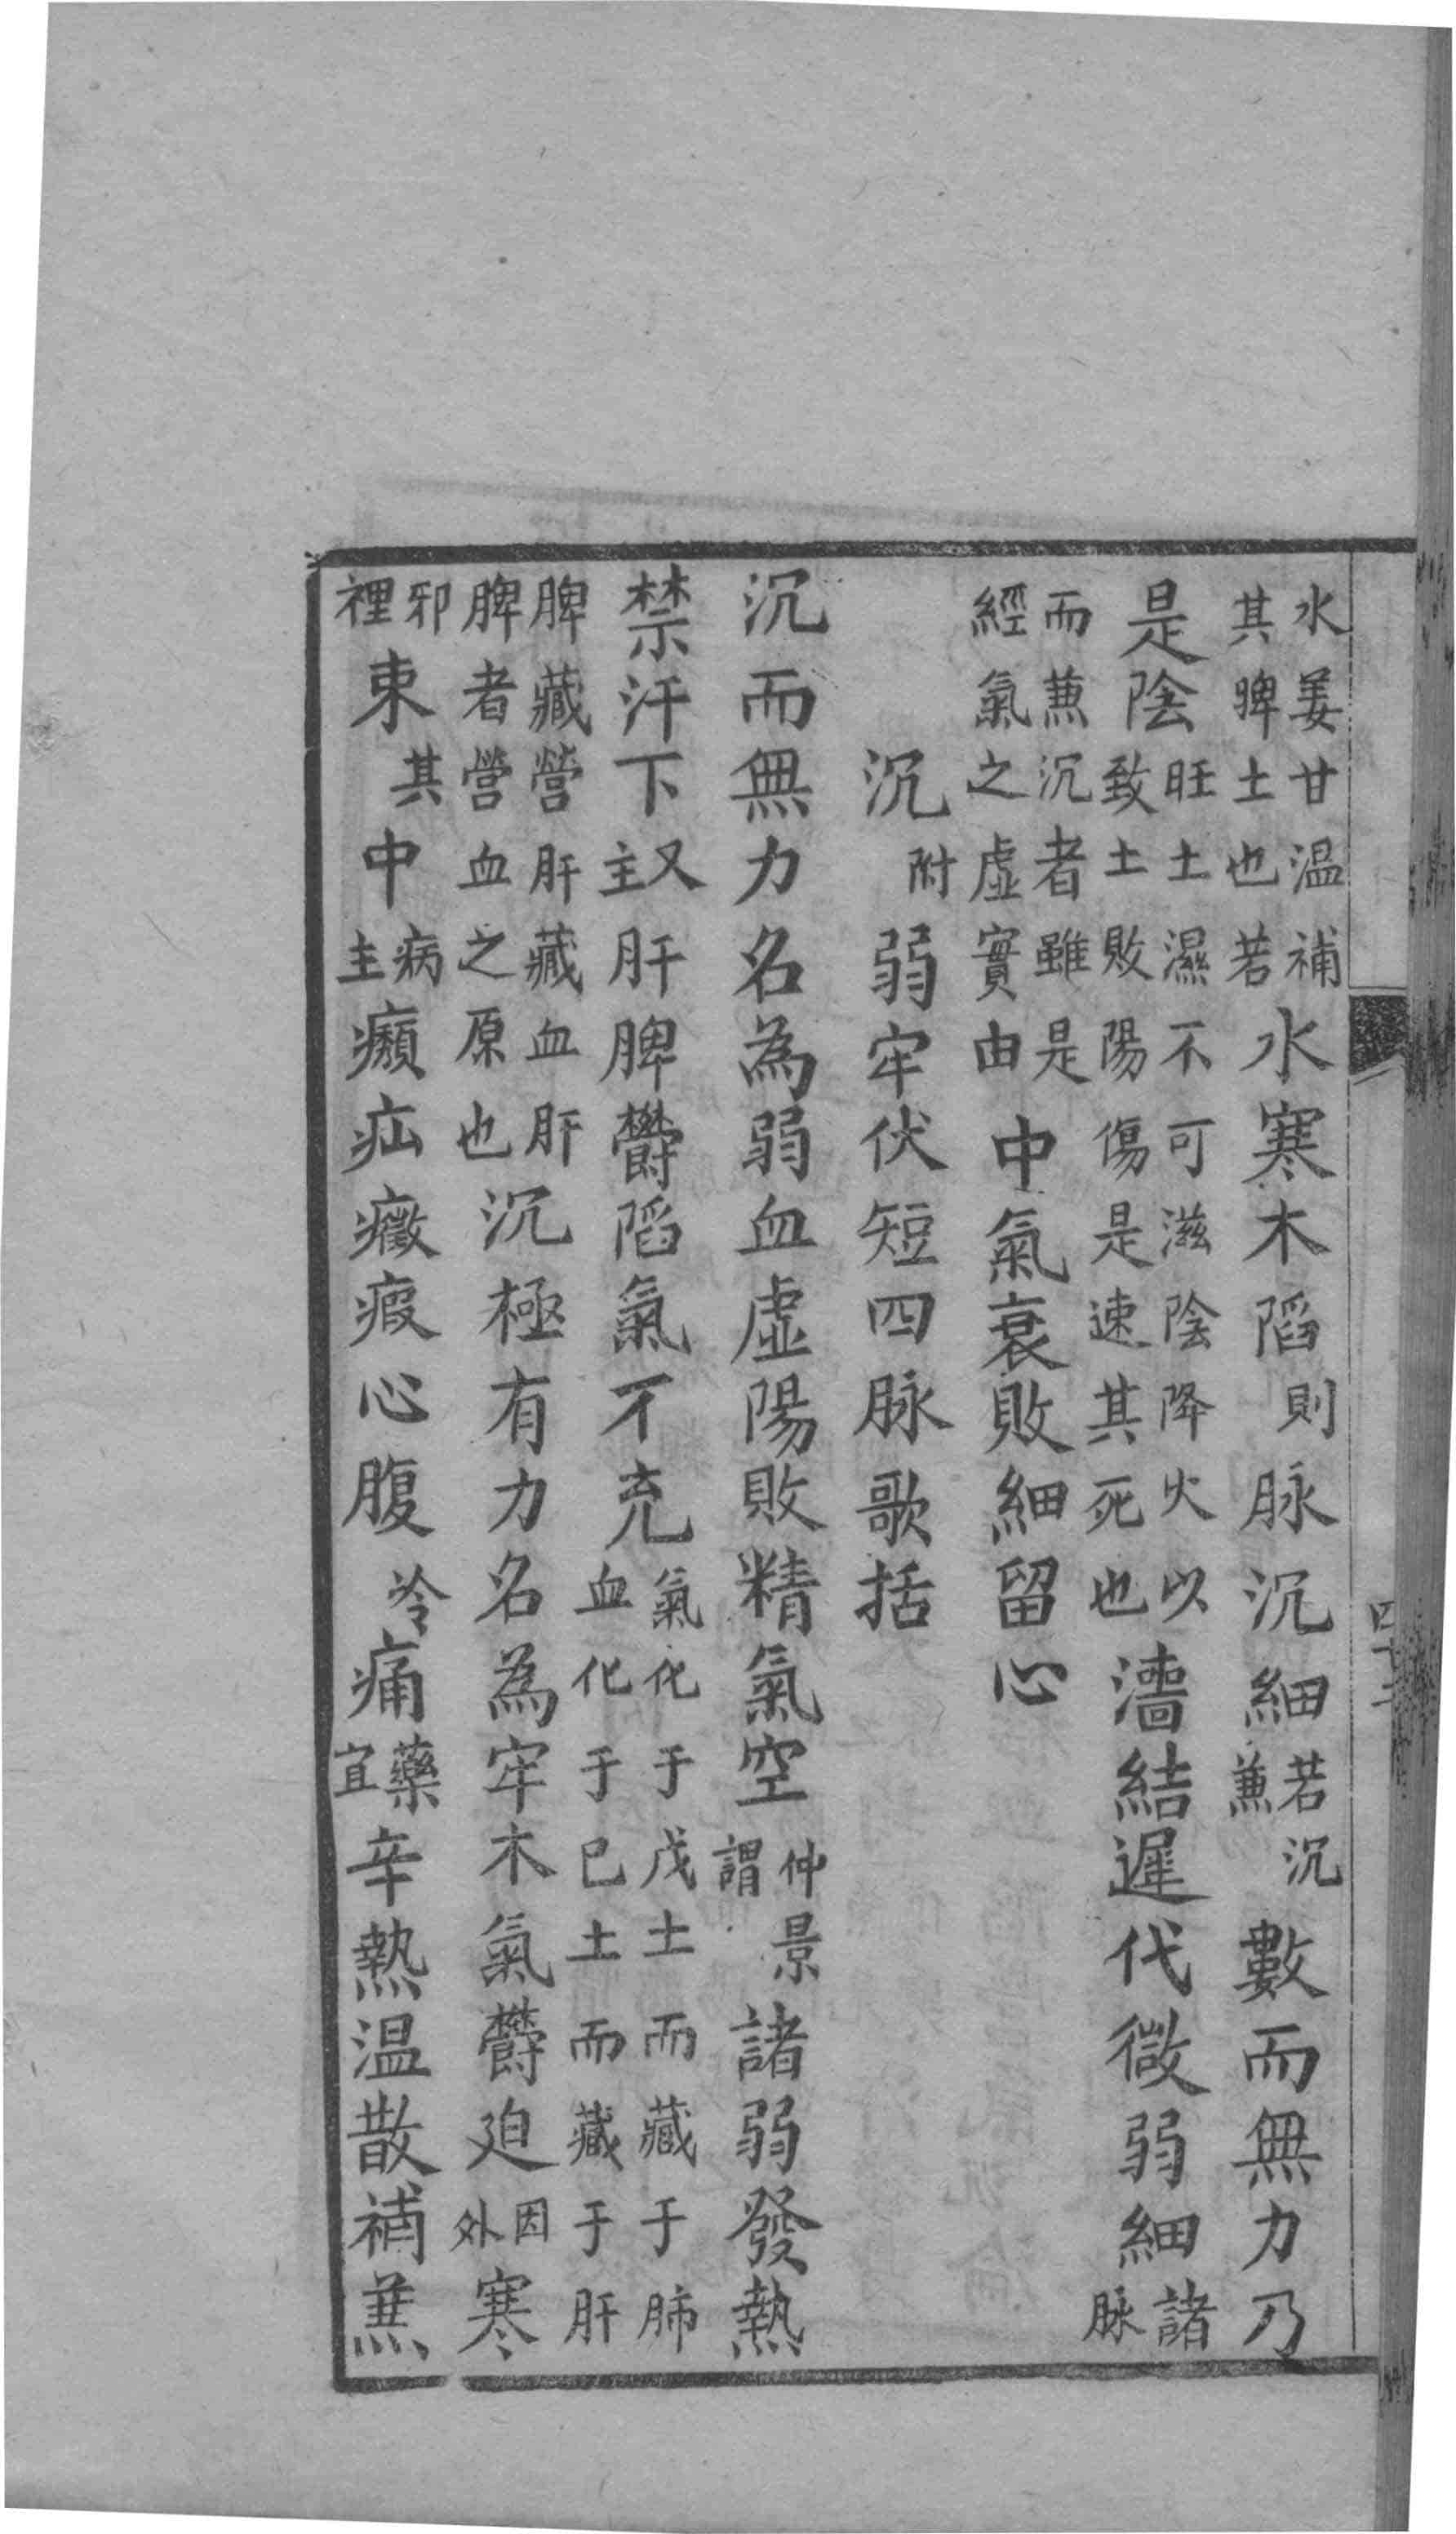 水姜甘温補其脾土也若水寒木陷則脉沉細若沉兼數而無力乃
是陰旺土濕不可滋陰降火以致土敗陽傷是速其死也濇結遲代微弱細諸脉
而兼沉者雖是經氣之虛實由中氣衰敗細留心
沉附弱牢伏短四脉歌括
沉而無力名為弱血虛陽敗精氣空仲景謂諸弱發熱
禁汗下又主肝脾欝陷氣不充氣化于戊土而藏于肺血化于己土而藏于肝
脾藏營肝藏血肝脾者營血之原也沉極有力名為牢木氣欝迫因外寒
邪裡束其中病主癩疝癥瘕心腹冷痛藥宜辛熱温散補兼